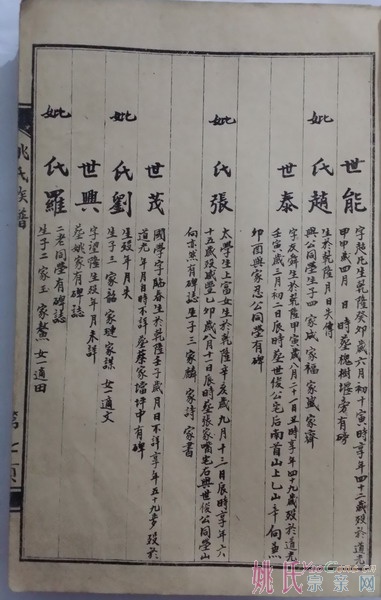 世能
字起化生乾隆癸卯歲六月初十寅時享年四十二歲殁於道光
甲申歲四月 日 時葬槐樹堰旁有碑
妣氏趙
生於乾隆 年 月 日失傳
與公同塋生子四 家城 家福 家盛 家齊
世泰
字辰舜生於乾隆甲寅歲八月二十一日丑時享年四十九歲殁於道光
壬寅歲三月初二日辰時葬世俊公宅后南首山上乙山辛向
妣氏張
太學生上富女生於乾隆辛亥歲九月十三日辰時享年六
十五歲殁咸豐乙卯歲八月十一日辰時葬張家嘴
向亦然有碑誌生子三 家麟 家詩 家書
世茂
國學字貽春生於乾隆壬子歲月日不詳享年五十九歲殁於
道光 年月日時不詳葬蔡家壋坪中有碑
妣氏劉
生殁年月失
生子三 家韶 家璉 家謀 女一適文
世興
字望隆生殁年月未詳
葬姚家有碑誌
妣氏羅
二老同塋有碑誌
生子二 家玉 家鰲 女一適田
姚氏族譜
姚氏宗亲网